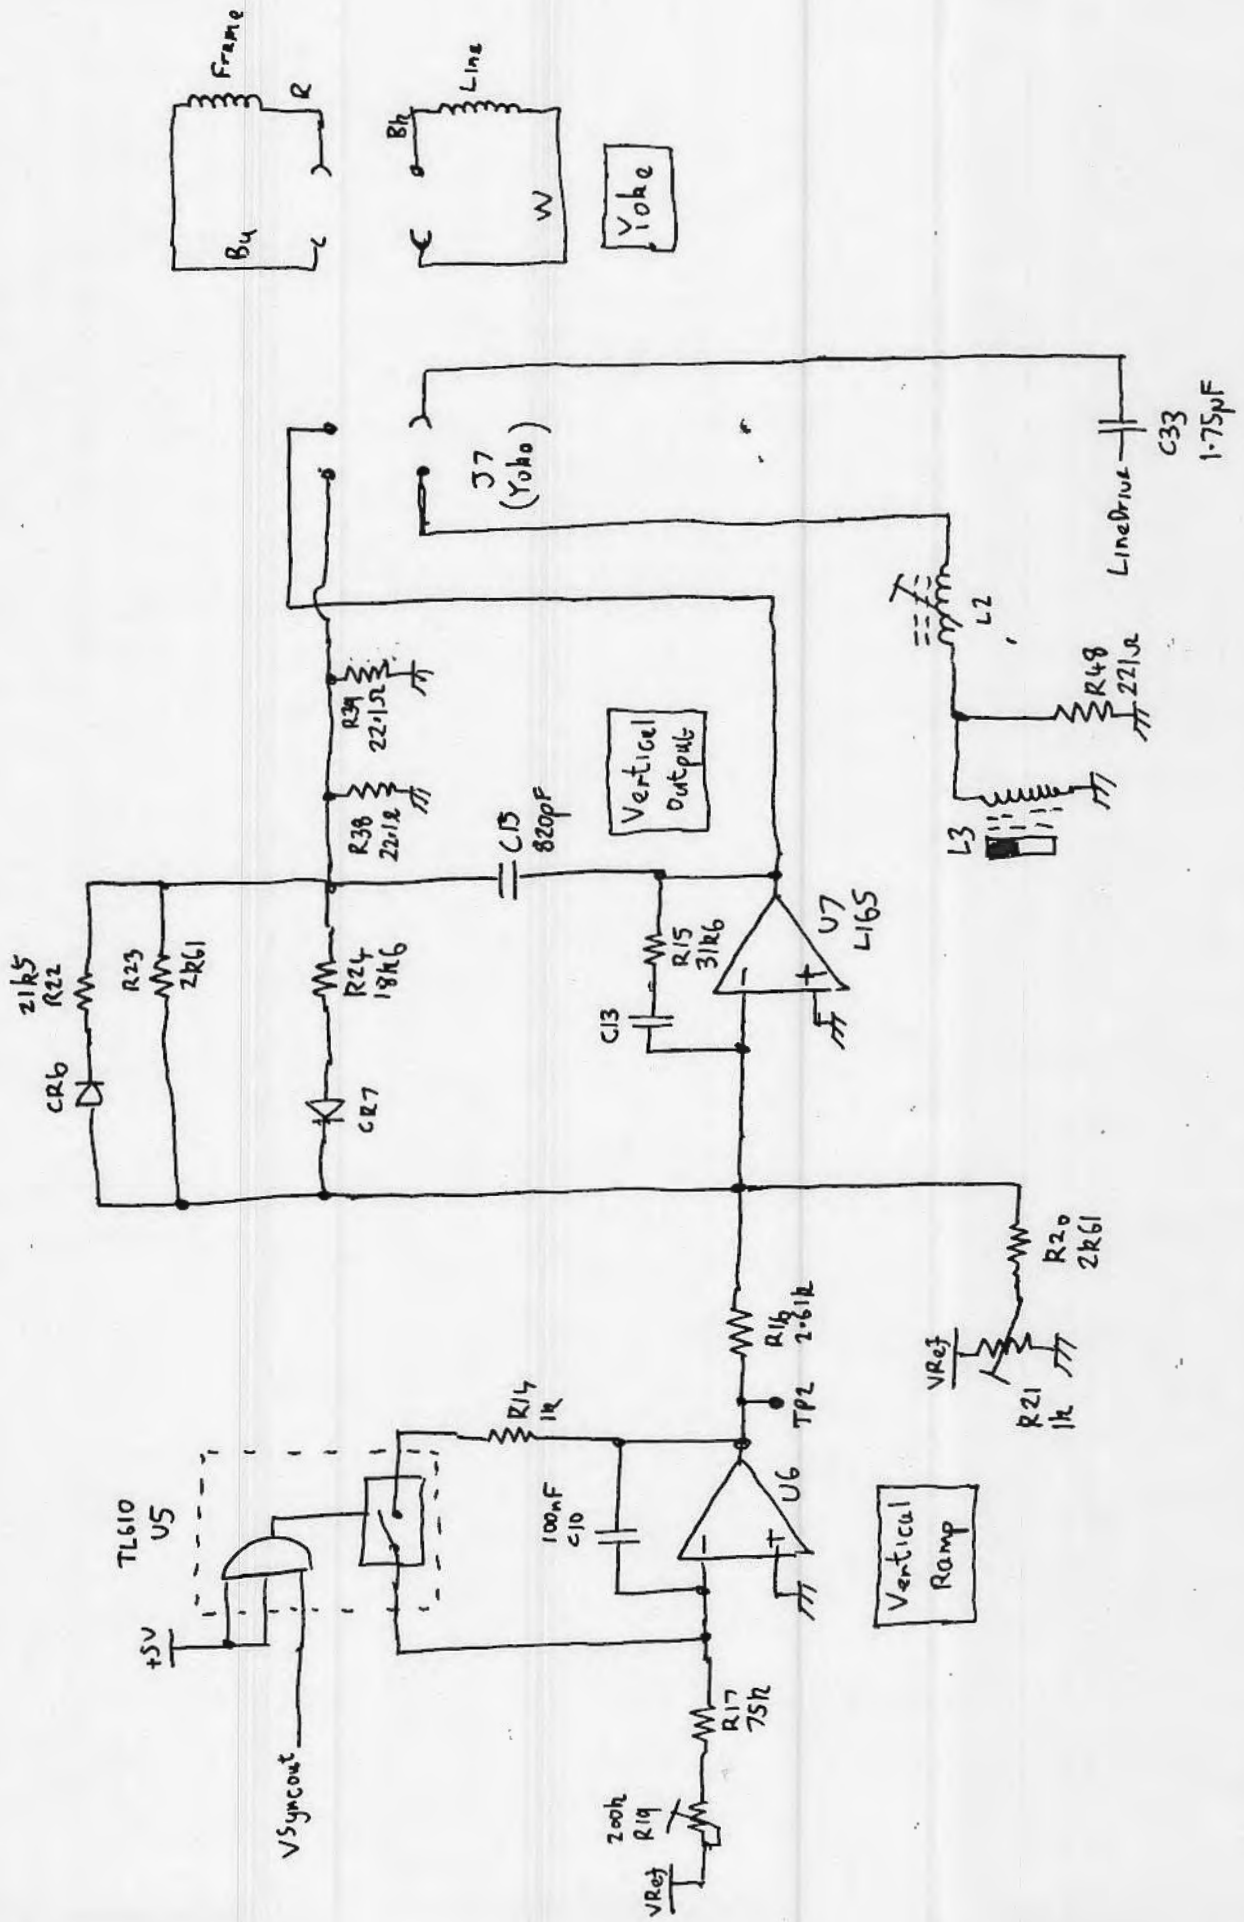 +5V
TL610
U5
VSyncout
VRef
200k
R19
R17
75k
100nF
C10
R14
1k
U6
TP2
R16
2.61k
Vertical
Ramp
VRef
R21
1k
R20
2k61
CR6
21k5
R22
R23
2k61
CR7
R24
18k6
C13
R15
31k6
U7
L165
C15
820pF
R38
22.1Ω
R39
22.1Ω
Vertical
Output
L3
L2
R48
221Ω
J7
(Yoke)
LineDrive
C33
1.75µF
Bu
Frame
R
Bk
Line
W
Yoke